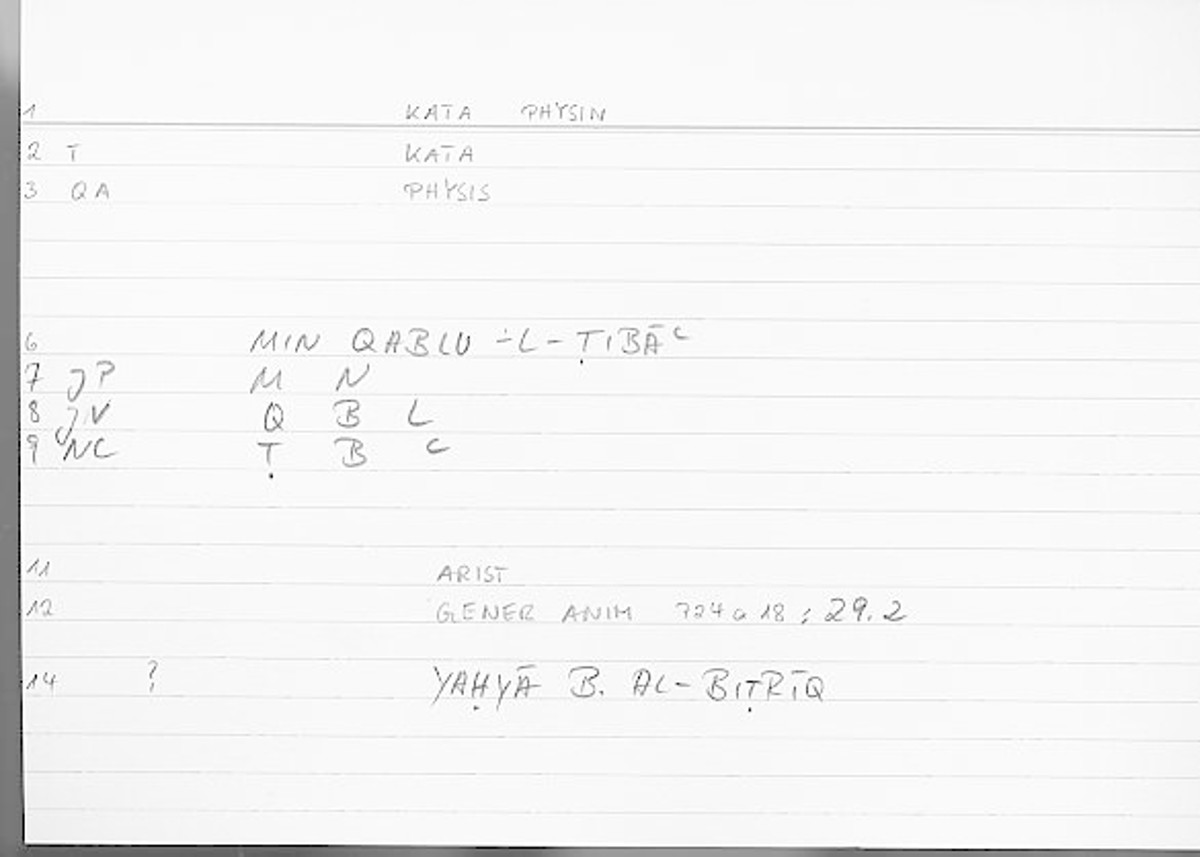 1 KATA PHYSIN
2 T KATA
3 QA PHYSIS
6 MIN QABLU -L-ṬIBĀC
7 JP M N
8 JV Q B L
9 NC Ṭ B C
11 ARIST
12 GENER ANIM 724 a 18 ; 29.2
14 ? YAḤYĀ B. AL-BIṬRĪQ